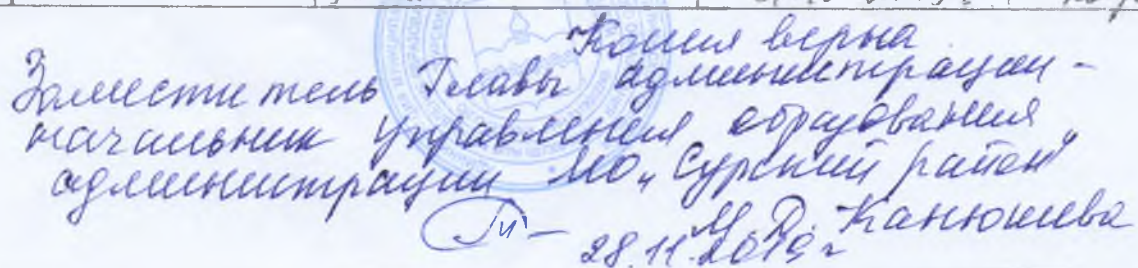 Копия верна
Заместитель Главы администрации -
начальник управления образования
администрации МО "Сурский район"
М.Д. Канюшева
28.11.2019г